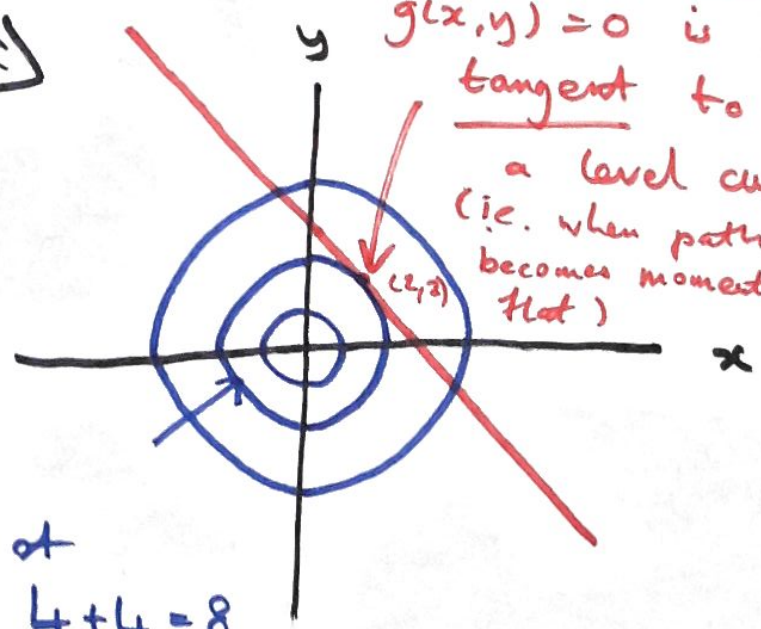 g(x,y) = 0 is
tangent to
a level cu
(i.e. when path
becomes moment
flat)
y
(2,2)
x
of
4+4 = 8